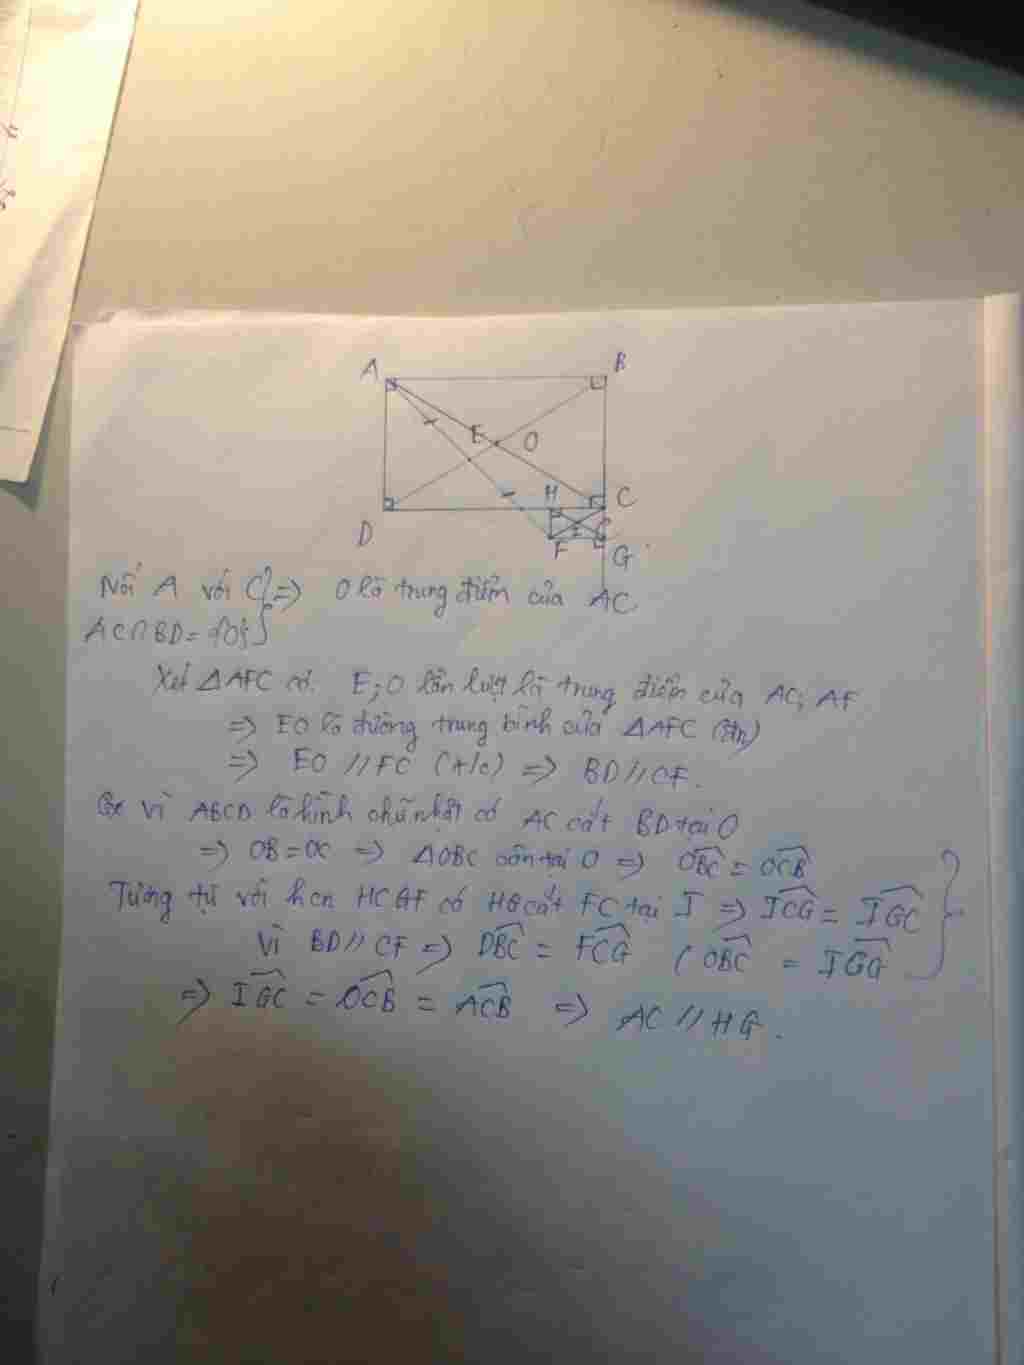 A B
E O
H C
D F I G
Nối A với C } => O là trung điểm của AC.
AC∩BD = {O} }
Xét ΔAFC có. E; O lần lượt là trung điểm của AC; AF
=> EO là đường trung bình của ΔAFC (đ/n)
=> EO // FC (t/c) => BD // CF.
vì ABCD là hình chữ nhật có AC cắt BD tại O
=> OB = OC => ΔOBC cân tại O => \widehat{OBC} = \widehat{OCB}
Tương tự với hcn HCGF có HG cắt FC tại I => \widehat{ICG} = \widehat{IGC}
Vì BD // CF => \widehat{DBC} = \widehat{FCG} ( \widehat{OBC} =
=> \widehat{IGC} = \widehat{OCB} = \widehat{ACB} => AC // HG.